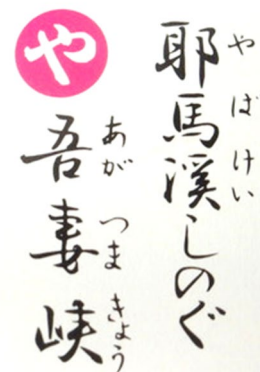 や
耶馬溪しのぐ
やばけい
吾妻峡
あがつまきょう